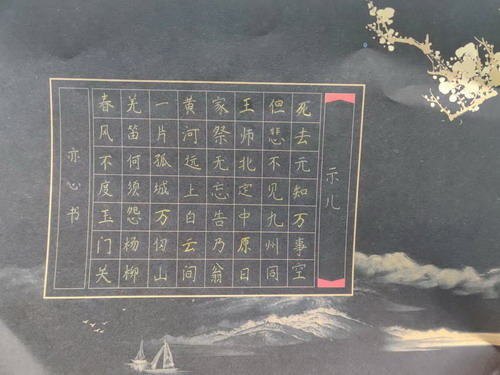 示儿
死去元知万事空
但悲不见九州同
王师北定中原日
家祭无忘告乃翁
黄河远上白云间
一片孤城万仞山
羌笛何须怨杨柳
春风不度玉门关
亦心书